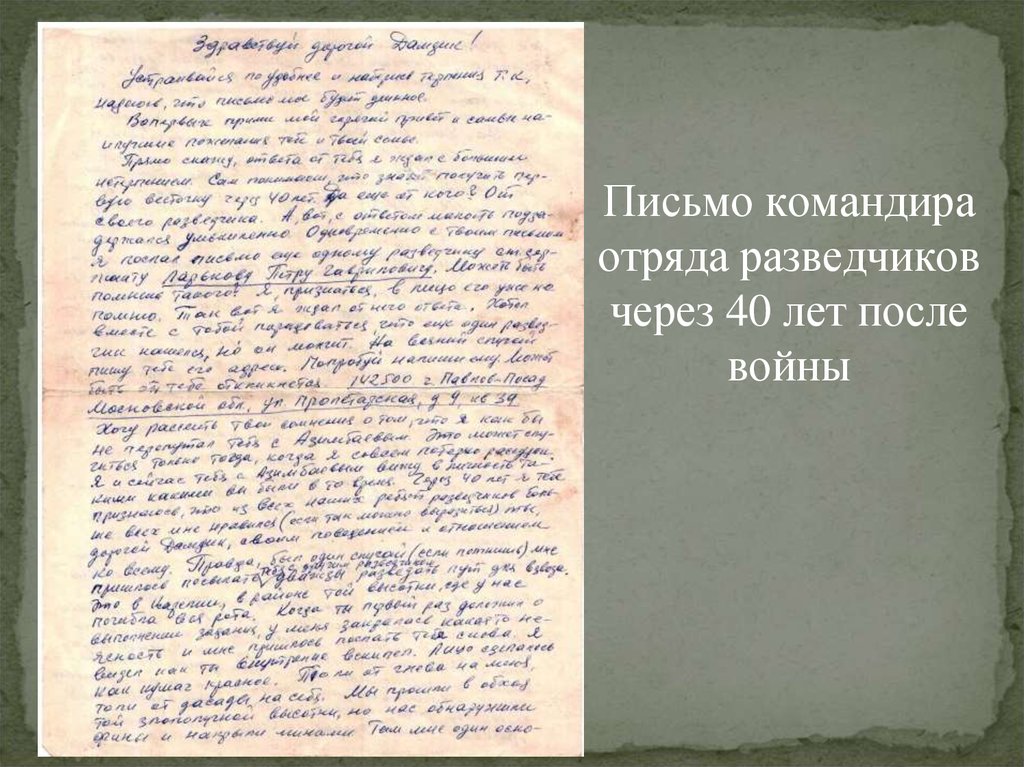 Здравствуй дорогой Дамдик!
Устраивайся поудобнее и наберись терпения т.к,
надеюсь, что письмо мое будет длинное.
Вопервых прими мой горячий привет и самые на-
илучшие пожелания тебе и твоей семье.
Прямо скажу, ответа от тебя я ждал с большим
нетерпением. Сам понимаешь, что значит получить пер-
вую весточку через 40 лет. Да еще от кого? От
своего разведчика. А, вот, с ответом малость подза-
держался умышленно. Одновременно с твоим письмом
я послал письмо еще одному разведчику ст. сер-
жанту Ларькову Петру Гавриловичу. Может быть
помнишь такого? Я, признаться, в лицо его уже не
помню. Так вот я ждал от него ответа. Хотел
вместе с тобой порадоваться, что еще один развед-
чик нашелся, но он молчит. На всякий случай
пишу тебе его адрес. Попробуй напиши ему. Может
быть он тебе откликнется. 142500 г. Павлов-Посад
Московской обл., ул Пролетарская, д 9, кв 39
Хочу рассеять твои сомнения о том, что я как бы
не перепутал тебя с Азимбаевым. Это может слу-
читься только тогда, когда я совсем потеряю рассудок.
Я и сейчас тебя с Азимбаевым вижу в личность та-
кими какими вы были в то время. Через 40 лет я тебе
признаюсь, что из всех наших ребят разведчиков боль-
ше всех мне нравился (если так можно выразиться) ты,
дорогой Дамдик, своим поведением и отношением
ко всему. Правда, был один случай (если помнишь) мне
пришлось посылать тебя с другим разведчиком дважды разведать путь для взвода.
Это в Карелии, в районе той высотки, где у нас
погибла вся рота. Когда ты первый раз доложил о
выполнении задания, у меня закралась какая то не-
ясность и мне пришлось послать тебя снова. Я
видел как ты внутренне вскипел. Лицо сделалось
как кумач красное. То ли от гнева на меня,
то ли от досады на себя. Мы прошли в обход
той злополучной высотки, но нас обнаружили
финны и накрыли минами Там мне один оско-
Письмо командира
отряда разведчиков
через 40 лет после
войны